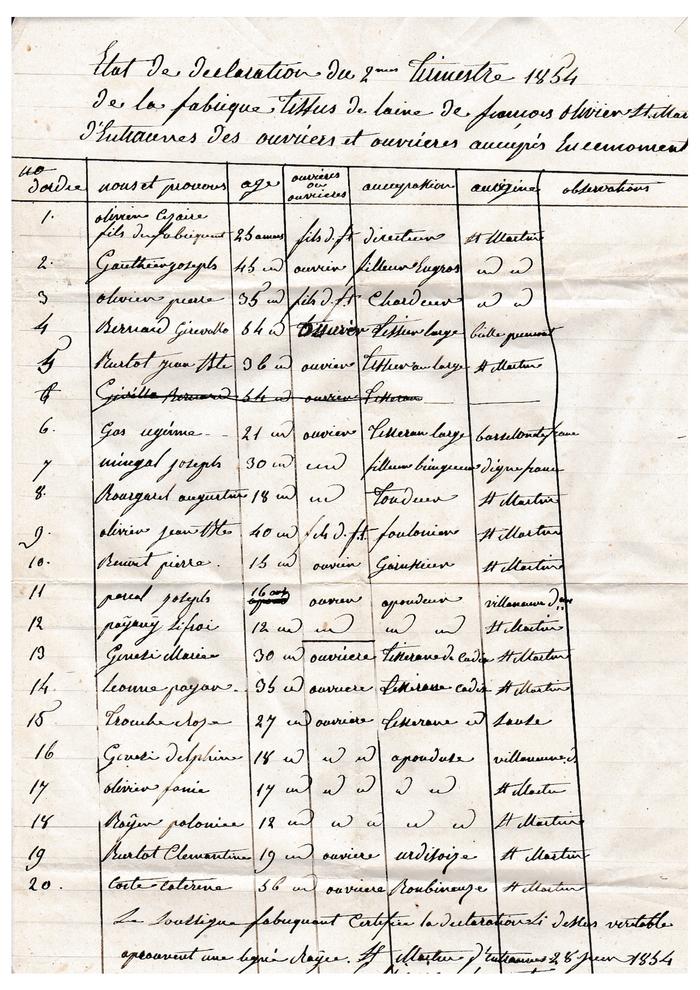 Etat de declaration du 2me trimestre 1854
de la fabrique tissus de laine de francois olivier St. Mar
d'Entraunes des ouvriers et ouvrieres occupés En cemoment
no d'ordre noms et prenoms age ouvriers ou ouvrieres occupation origine observations
1. olivier Cezaire
fils du fabriquant 25 annes fils d. ft directeur St Martin
2. Gauthier joseph 45 id ouvrier filleur Engros id id
3 olivier pierre 35 id fils d. ft Chardeur id id
4 Bernard Girevollo 54 id ouvrier tissier large piemont
5 Burlot jean Bte 36 id ouvrier tisser en large St Martin
6 Bernard 54 id ouvrier tisseran
6. Gas 21 id ouvrier tisseran large france
7 joseph 30 id id filleur digne france
8. augustin 18 id id Tondeur St Martin
9. olivier jean Bte 40 id fils d. ft foulonier St Martin
10. Benoit pierre. 15 id ouvrier St Martin
11 pascal joseph 16 ans ouvrier apondeur villeneuve d.
12 12 id id id id St Martin
13 Marie 30 id ouvriere tisserane de cadis St Martin
14. leonne payan. 35 id ouvriere tisserane cadis St Martin
15 Trouche Rose 27 id ouvriere tisserane id sause
16 delphine 18 id id id apondeuse villeneuve d.
17 olivier 17 id id id id St Martin
18 Royer polonie 12 id id id id St Martin
19 Burlot Clemantine 19 id ouviere urdisoize St Martin
20. Coste Caterine 56 id ouvriere Roubineuze St Martin
Le Soussigne fabriquant Certifie la declaration si dessus veritable
aprouvent une ligne Rayee. St Martin d'Entraunes 28 juin 1854